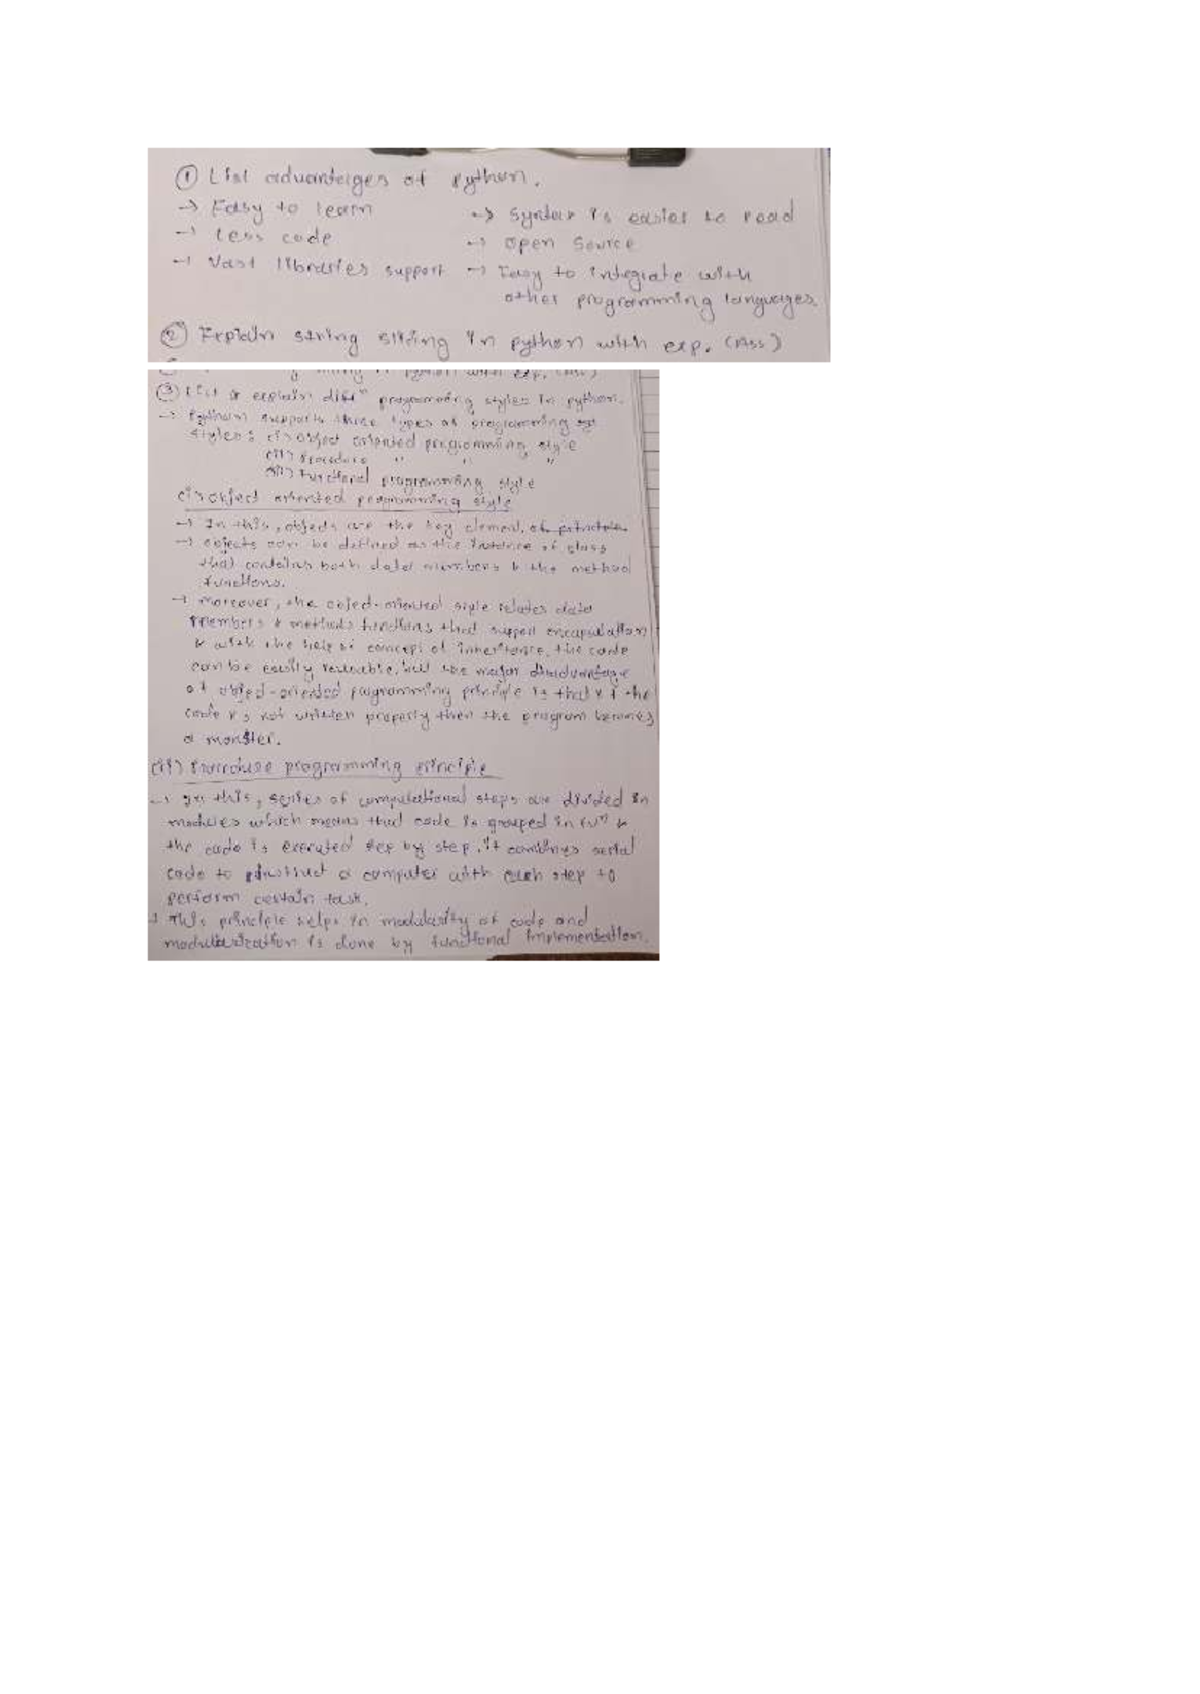 ① List advantages of python.
→ Easy to learn → Syntax is easier to read
→ Less code → open source
→ Vast libraries support → Easy to integrate with
other programming languages.
② Explain string slicing in python with exp. (Ass)
③ List & explain diffⁿ programming styles in python.
→ Python supports three types of programming
styles : (i) object oriented programming style
(ii) Procedure " " "
(iii) Functional programming style
(i) object oriented programming style
→ In this, objects are the key element. of principle
→ objects can be defined as the instance of class
that contains both data members & the method
functions.
→ moreover, the object-oriented style relates data
members & methods functions that support encapsulation
& with the help of concept of inheritance, the code
can be easily reusable. but the major disadvantage
of object-oriented programming principle is that if the
code is not written properly then the program becomes
a monster.
(ii) Procedure programming principle
→ In this, series of computational steps are divided in
modules which means that code is grouped in fuⁿ &
the code is executed step by step. it combines serial
code to a computer with each step to
perform certain task.
→ This principle helps in modularity of code and
modularization is done by functional implementation.